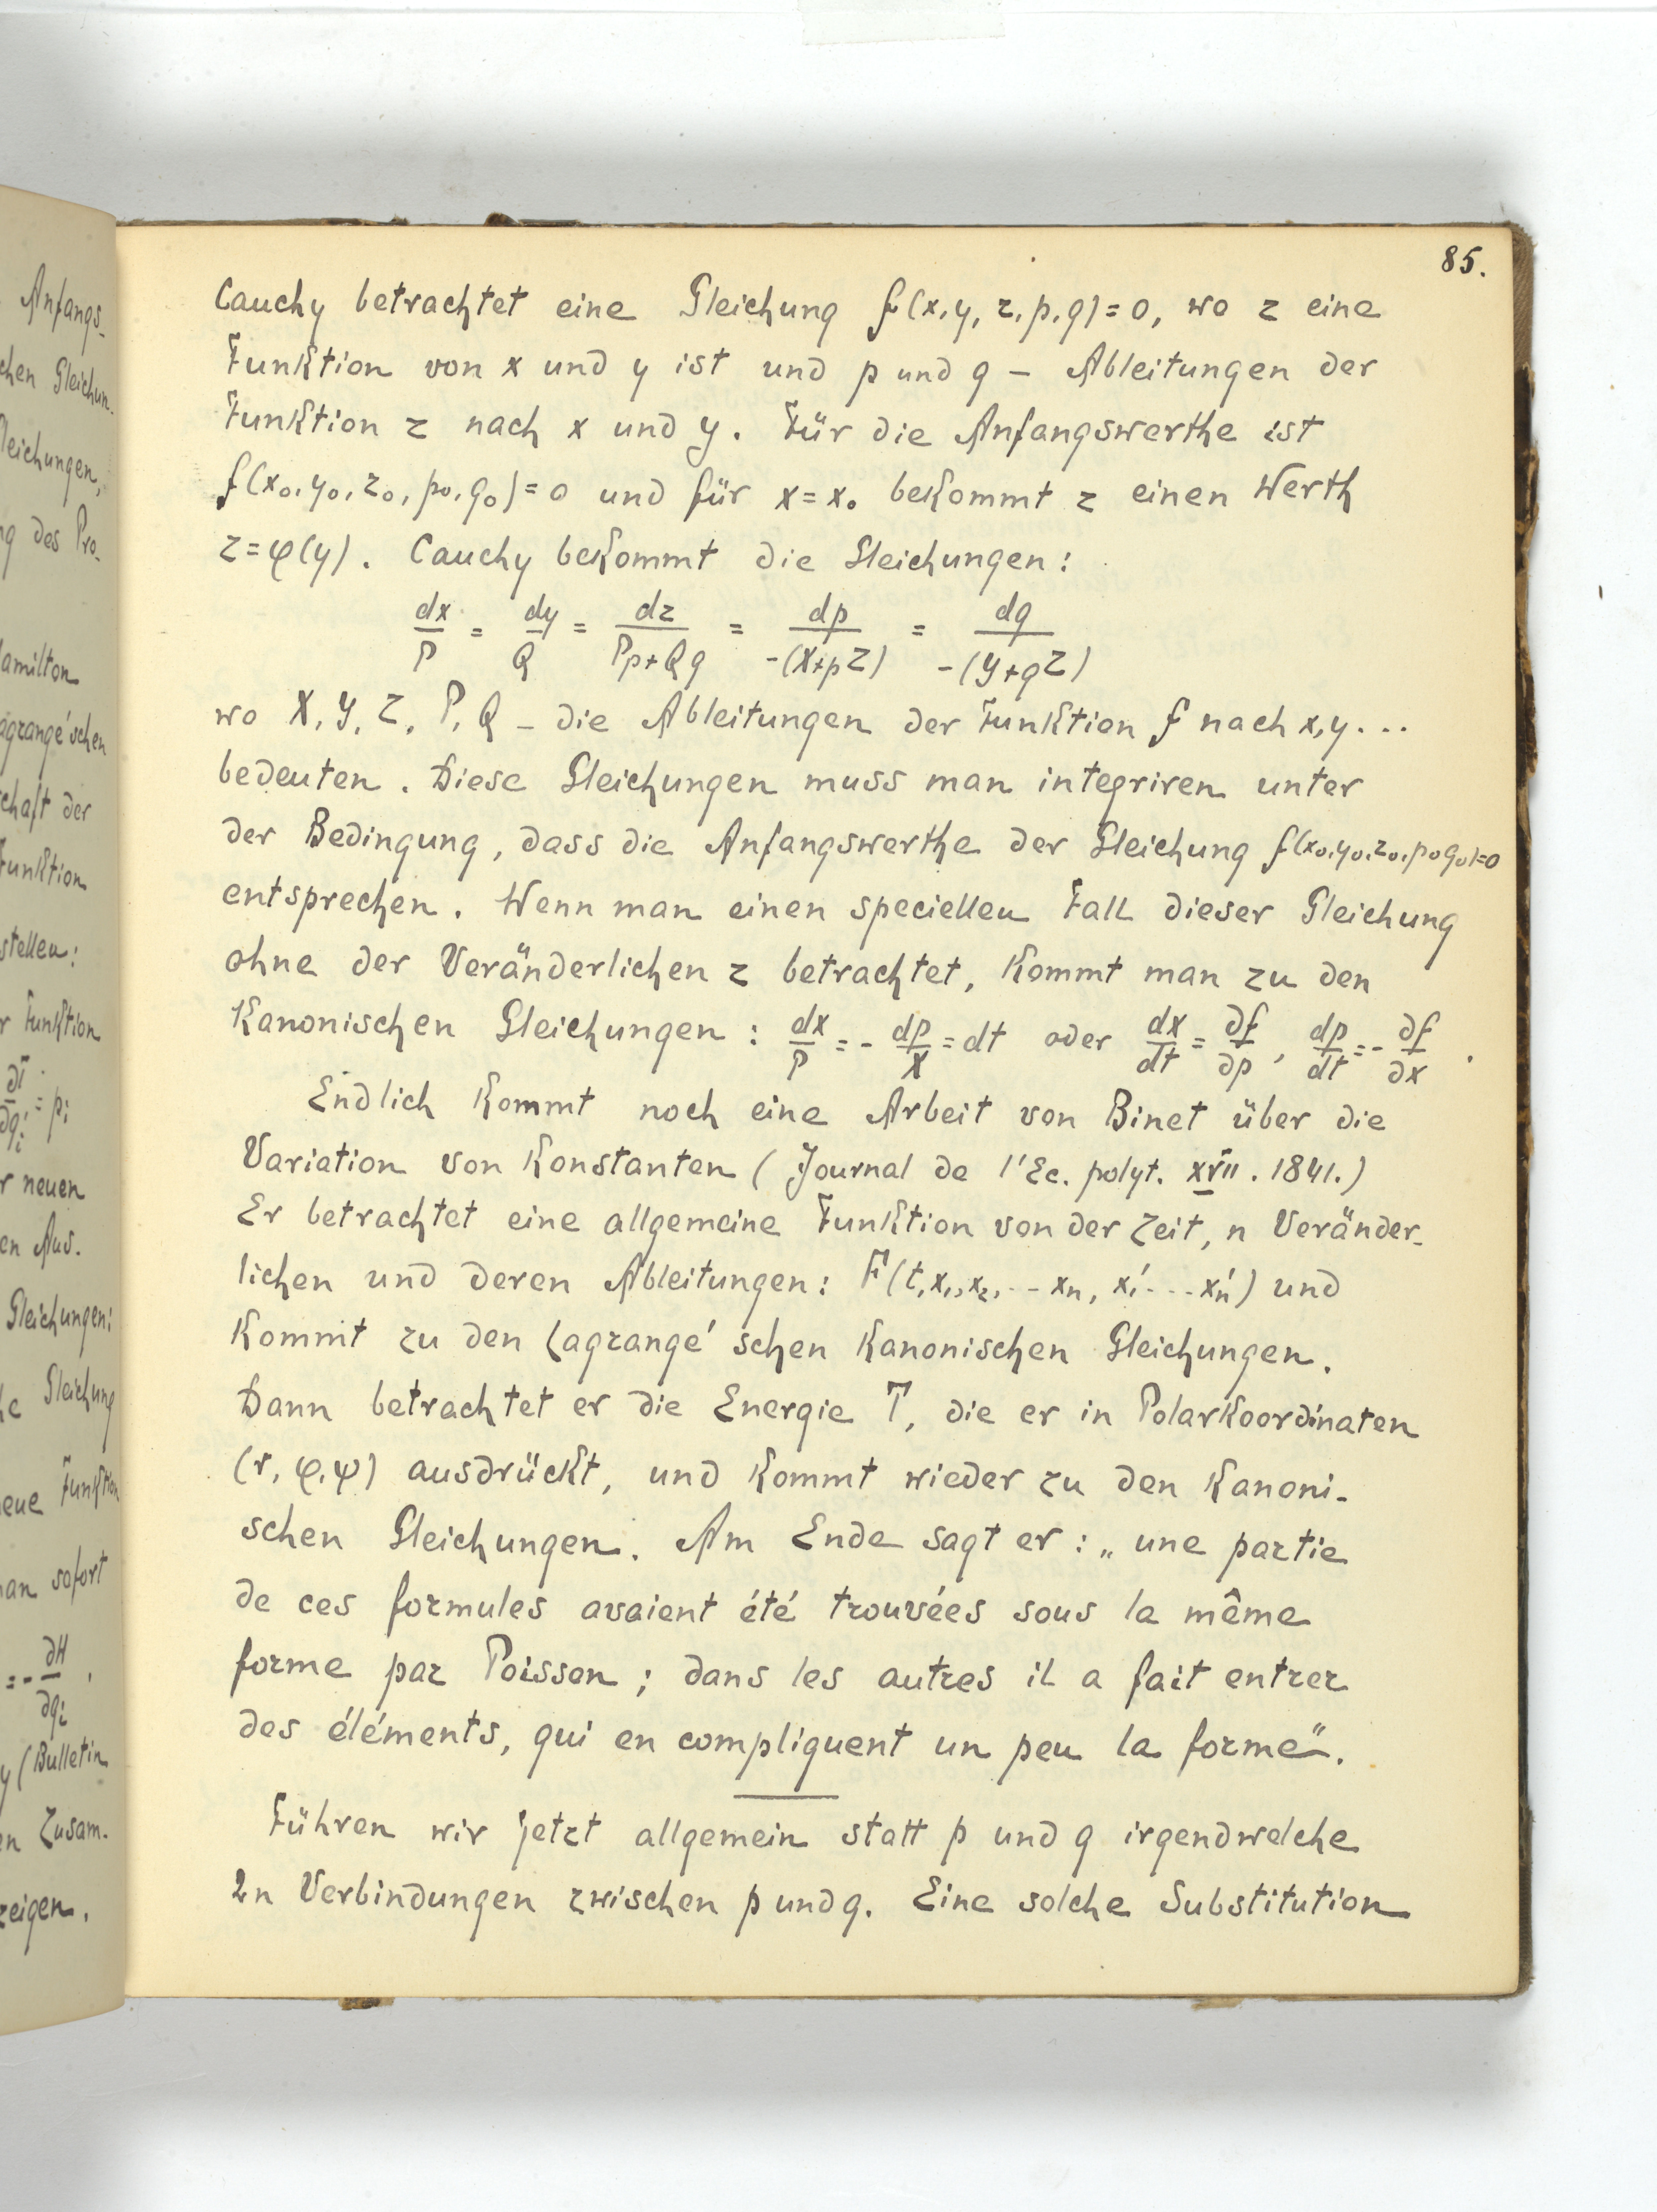 85.
Cauchy betrachtet eine Gleichung f(x, y, z, p, q) = 0, wo z eine
Funktion von x und y ist und p und q – Ableitungen der
Funktion z nach x und y. Für die Anfangswerthe ist
f(x₀, y₀, z₀, p₀, q₀) = 0 und für x = x₀ bekommt z einen Werth
z = φ(y). Cauchy bekommt die Gleichungen:
dx/P = dy/Q = dz/(Pp+Qq) = dp/-(X+pZ) = dq/-(Y+qZ)
wo X, Y, Z, P, Q – die Ableitungen der Funktion f nach x, y...
bedeuten. Diese Gleichungen muss man integriren unter
der Bedingung, dass die Anfangswerthe der Gleichung f(x₀,y₀,z₀,p₀q₀)=0
entsprechen. Wenn man einen speciellen Fall dieser Gleichung
ohne der Veränderlichen z betrachtet, kommt man zu den
kanonischen Gleichungen: dx/P = - dp/X = dt oder dx/dt = ∂f/∂p, dp/dt = - ∂f/∂x.
Endlich kommt noch eine Arbeit von Binet über die
Variation von Konstanten (Journal de l'Ec. polyt. XVII. 1841.)
Er betrachtet eine allgemeine Funktion von der Zeit, n Veränder-
lichen und deren Ableitungen: F(t, x₁, x₂, ... xn, x₁' ... xn') und
kommt zu den Lagrange'schen kanonischen Gleichungen.
Dann betrachtet er die Energie T, die er in Polarkoordinaten
(r, φ, ψ) ausdrückt, und kommt wieder zu den kanoni-
schen Gleichungen. Am Ende sagt er: „une partie
de ces formules avaient été trouvées sous la même
forme par Poisson; dans les autres il a fait entrer
des éléments, qui en compliquent un peu la forme".
Führen wir jetzt allgemein statt p und q irgendwelche
2n Verbindungen zwischen p und q. Eine solche Substitution